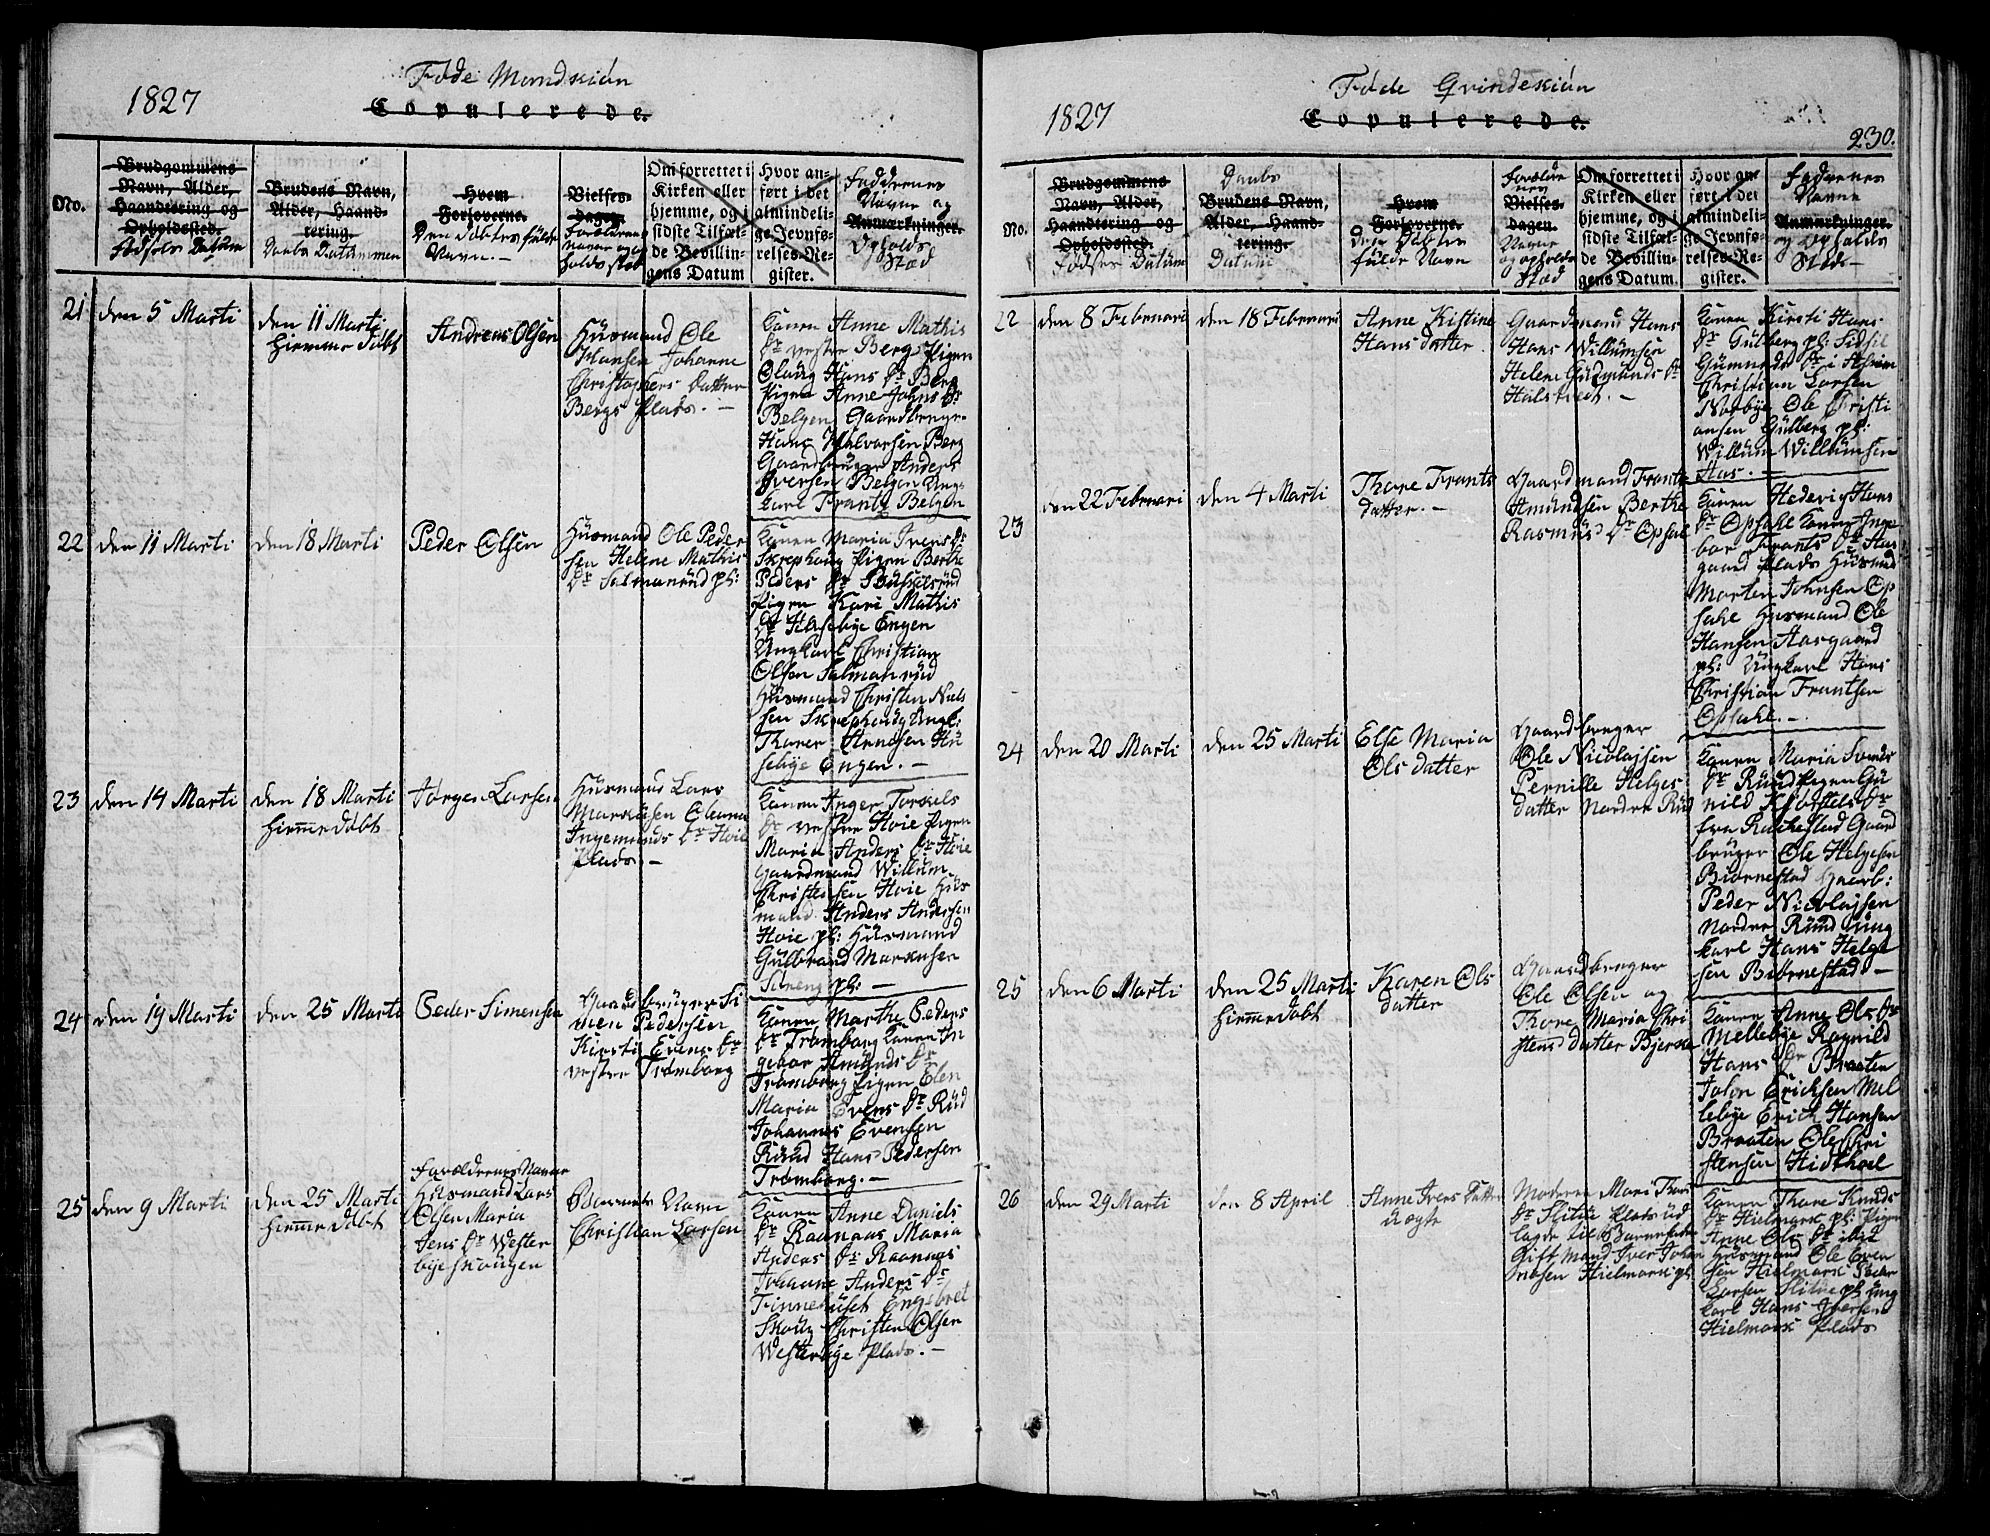 1827
Føde Mandkiøn
Copulerede.
No.
Brudgommens
Navn, Alder,
Haandtering og
Opholdssted.
Fødsels Datum
Brudens Navn,
Alder, Haand-
tering.
Daabs Datummen
Hvem
Forloverne.
Den Døbtes fulde
Navn.-
Vielses-
dagen.
Forældrenes
navne og op
holds sted
Om forrettet i
Kirken eller
hjemme, og i
sidste Tilfæl-
de Bevillin-
gens Datum
Hvor an-
ført i det
almindeli-
ge Jevnfø-
relses-Re-
gister.
Faddernes
Navne og
Anmærkninger.
Opholds
Stæd
21
den 5 Marti
den 11 Marti
hiemme Døbt
Andreas Olsen
Huusmand Ole
Hansen Johanne
Christophers Datter
Bergs Plads. -
Konen Anne Mathis
Dr vestre Berg Pigen
Olaug Hans Dr Berg
Pigen Anne Johns Dr
Belgen Gaardbruger
Hans Halvorsen Berg
Gaardbruger Anders
Iversen Belgen Ung-
karl Frantz Belgen
22
den 11 Marti
den 18 Marti
Peder Olsen
Huusmand Ole Peder
sen Helene Mathis
Dr Salmanrud pl:
Konen Maria Ivers Dr
Skrephoug Pigen Berthe
Peders Dr Buskesrud
Pigen Kari Mathis
Dr Husebye Engen
Ungkarl Christian
Olsen Salmanrud
Huusmand Christen Niel
sen Skrephoug Ungk:
Thorer Arnesen Hu
sebye Engen. -
23
den 14 Marti
den 18 Marti
hiemme Døbt
Jørgen Larsen
Huusmand Lars
Markusen Oleana
Ingemunds Dr Hoie
Plads -
Konen Inger Torkels
Dr vestre Hoie Pigen
Maria Anders Dr Hoie
Gaardmand Willum
Christensen Hoie Huus
mand Anders Andersen
Hoie pl: Huusmand
Gulbrand Markusen
pl: -
24
den 19 Marti
den 25 Marti
Peder Simensen
Gaardbruger Si
men Pedersen
Kirsti Evens Dr
vestre Tromborg
Konen Marthe Peders
Dr Tromborg Konen In
gebor Amunds Dr
Tromborg Pigen Elen
Maria Evens Dr Rud
Johannes Evensen
Ruud Hans Pedersen
Tromborg. -
25
den 9 Marti
den 25 Marti
hiemme Døbt
Forældrenes Navne
Huusmand Lars
Olsen Maria
Jens Dr Wester
bye skougen
Barnets Navn
Christian Larsen
Konen Anne Daniels
Dr Raanaas Maria
Anders Dr Raanaas
Johanne Anders Dr
Finnehuset Engebret
Skoug Christen Olsen
Westerbye Plads. -
1827
Føde Qvindekiøn
Copulerede.
230.
No.
Brudgommens
Navn, Alder,
Haandtering og
Opholdssted.
Fødsels Datum
Daabs
Brudens Navn,
Alder, Haand-
tering.
Datum
Hvem
Forloverne.
den Døbtes
fulde Navn
Forældre
nes
Vielses-
dagen.
Navne
og opholds
Stæd
Om forrettet i
Kirken eller
hjemme, og i
sidste Tilfæl-
de Bevillin-
gens Datum.
Hvor an-
ført i det
almindeli-
ge Jevnfø-
relses-Re-
gister.
Fadernes
Navne
Anmærkninger.
og Opholds
Stæd -
22
den 8 Februari
den 18 Februari
Anne Kistine
Hans Datter
Gaardmand Hans
Hans Willumsen
Helene Gudmunds Dr
Halstvedt. -
Konen Kirsti Hans
Dr Gulberg pl: Sidsil
Gumunds Dr i Askim
Christian Larsen
Norbye Ole Christi
ansen Gulberg pl:
Willum Willumsen
Aas. -
23
den 22 Februari
den 4 Marti
Thore Frants
datter. -
Gaardmand Frants
Amundsen Berthe
Rasmus Dr Opsal
Konen Hedevig Hans
Dr Opsahl Konen Inge
bor Frants Dr Aas
gaard Plads Huusmand
Morten Johnsen Op
sahl Husmand Ole
Hansen Aasgaard
pl: Ungkarl Hans
Christian Frantsen
Opsahl. -
24
den 20 Marti
den 25 Marti
Else Maria
Ols datter
Gaardbruger
Ole Nicolajsen
Pernille Helges
datter Nordre Rud
Konen Maria Svends
Dr Ruud Pigen Gu
nild Kjostels Dr
fra Rachestad Gaard
bruger Ole Helgesen
Biørnestad Gaardb:
Peder Nicolajsen
Nordre Ruud Ung
karl Hans Helge
sen Biørnestad -
25
den 6 Marti
den 25 Marti
hiemmeDøbt
Karen Ols
datter
Gaardbruger
Ole Olsen og
Thore Maria Chri
stens Datter Bjerke
Konen Anne Ols Dr
Mellebye Ragnild
Hans Dr Braaten
John Erichsen Mel
lebye Erich Hansen
Braaten Ole Chri
stensen Hidthoel
26
den 29 Marti
den 8 April
Anne Ivers Datter
Uægte
Moderen Mari Thors
Dr Slitu Plads ud
lagde til Barnefader
Gift Mand Iver Johan
nesen Hielmark pl:
Konen Thore Knuds
Dr Hielmark pl: Pigen
Anne Ols Dr ibid
Husmand Ole Even
sen Hielmark Peder
Larsen Slitue pl: Ung
karl Hans Iversen
Hielmark Plads